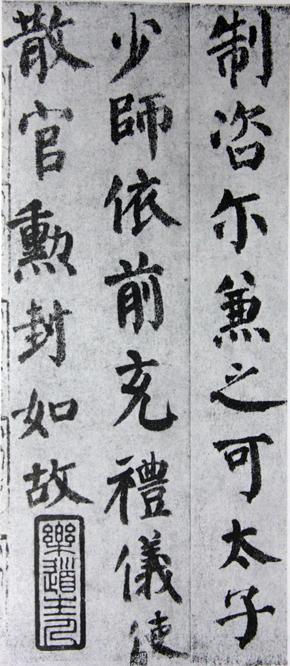 制咨尔兼之可太子
少師依前充禮儀使
散官勲封如故
樂道主人